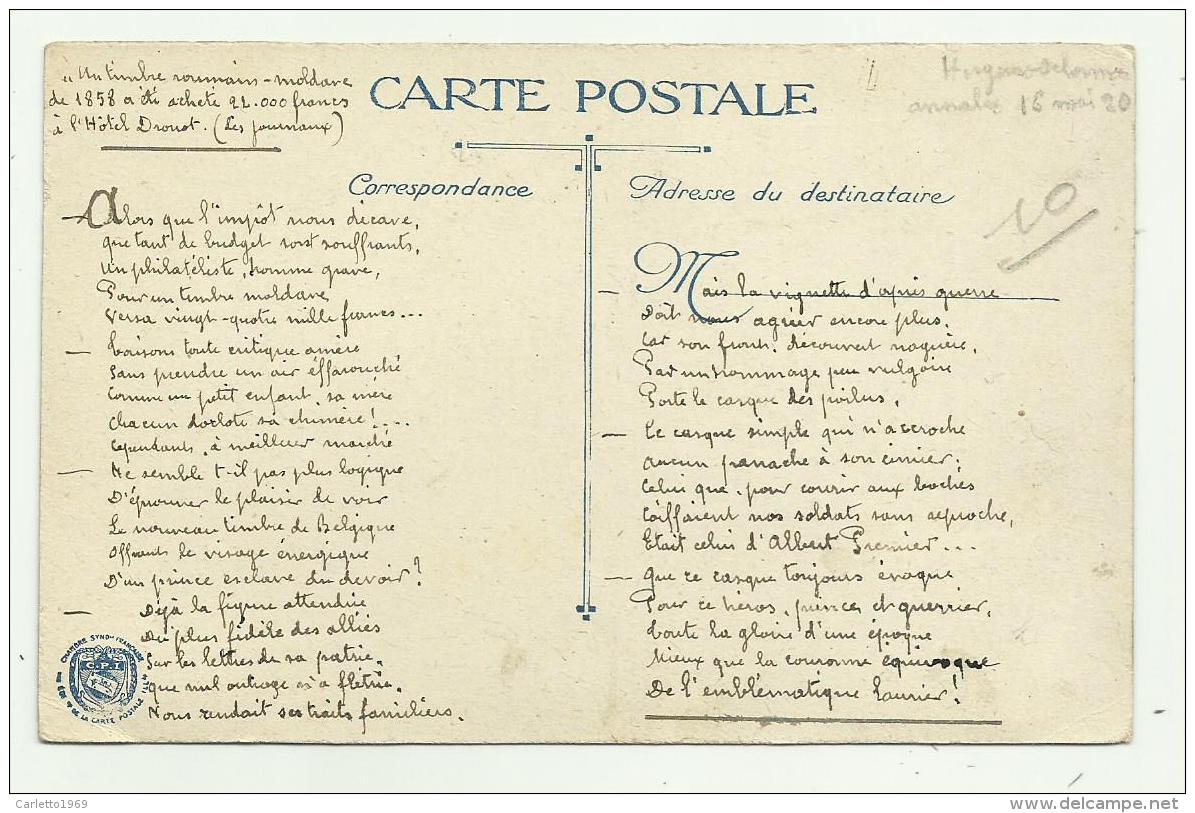 "Un timbre roumain-moldave
de 1858 a été acheté 21.000 francs
à l'Hôtel Drouot. (Les journaux)
CARTE POSTALE
annales 16 mai 20
Correspondance
Adresse du destinataire
10
Alors que l'impôt nous décave,
que tant de budget sont souffrants,
Un philatéliste, homme grave,
Pour un timbre moldave
Versa vingt-quatre mille francs...
— Taisons toute critique amère
Sans prendre un air éffarouché
Comme un petit enfant, sa mère
Chacun dorlote sa chimère!....
Cependant, à meilleur marché
— Ne semble t-il pas plus logique
D'éprouver le plaisir de voir
Le nouveau timbre de Belgique
Offrant le visage énergique
D'un prince esclave du devoir?
— Déjà la figure attendrie
Du plus fidèle des alliés
Sur les lettres de sa patrie,
que nul outrage n'a flétrie,
Nous rendait ses traits familiers.
— Mais la vignette d'après guerre
Doit nous agréer encore plus,
Car son front, découvert naguère,
Par un hommage peu vulgaire
Porte le casque des poilus,
— Le casque simple qui n'accroche
Aucun panache à son cimier,
Celui que, pour courir aux boches
Coiffaient nos soldats sans reproche,
Etait celui d'Albert Premier...
— Que ce casque toujours évoque
Pour ce héros, prince et guerrier,
Toute la gloire d'une époque
Mieux que la couronne équivoque
De l'emblématique laurier!
CHAMBRE SYND^LE FRANÇAISE
C.P.I
DE LA CARTE POSTALE ILL^EE
Carletto1969
www.delcampe.net